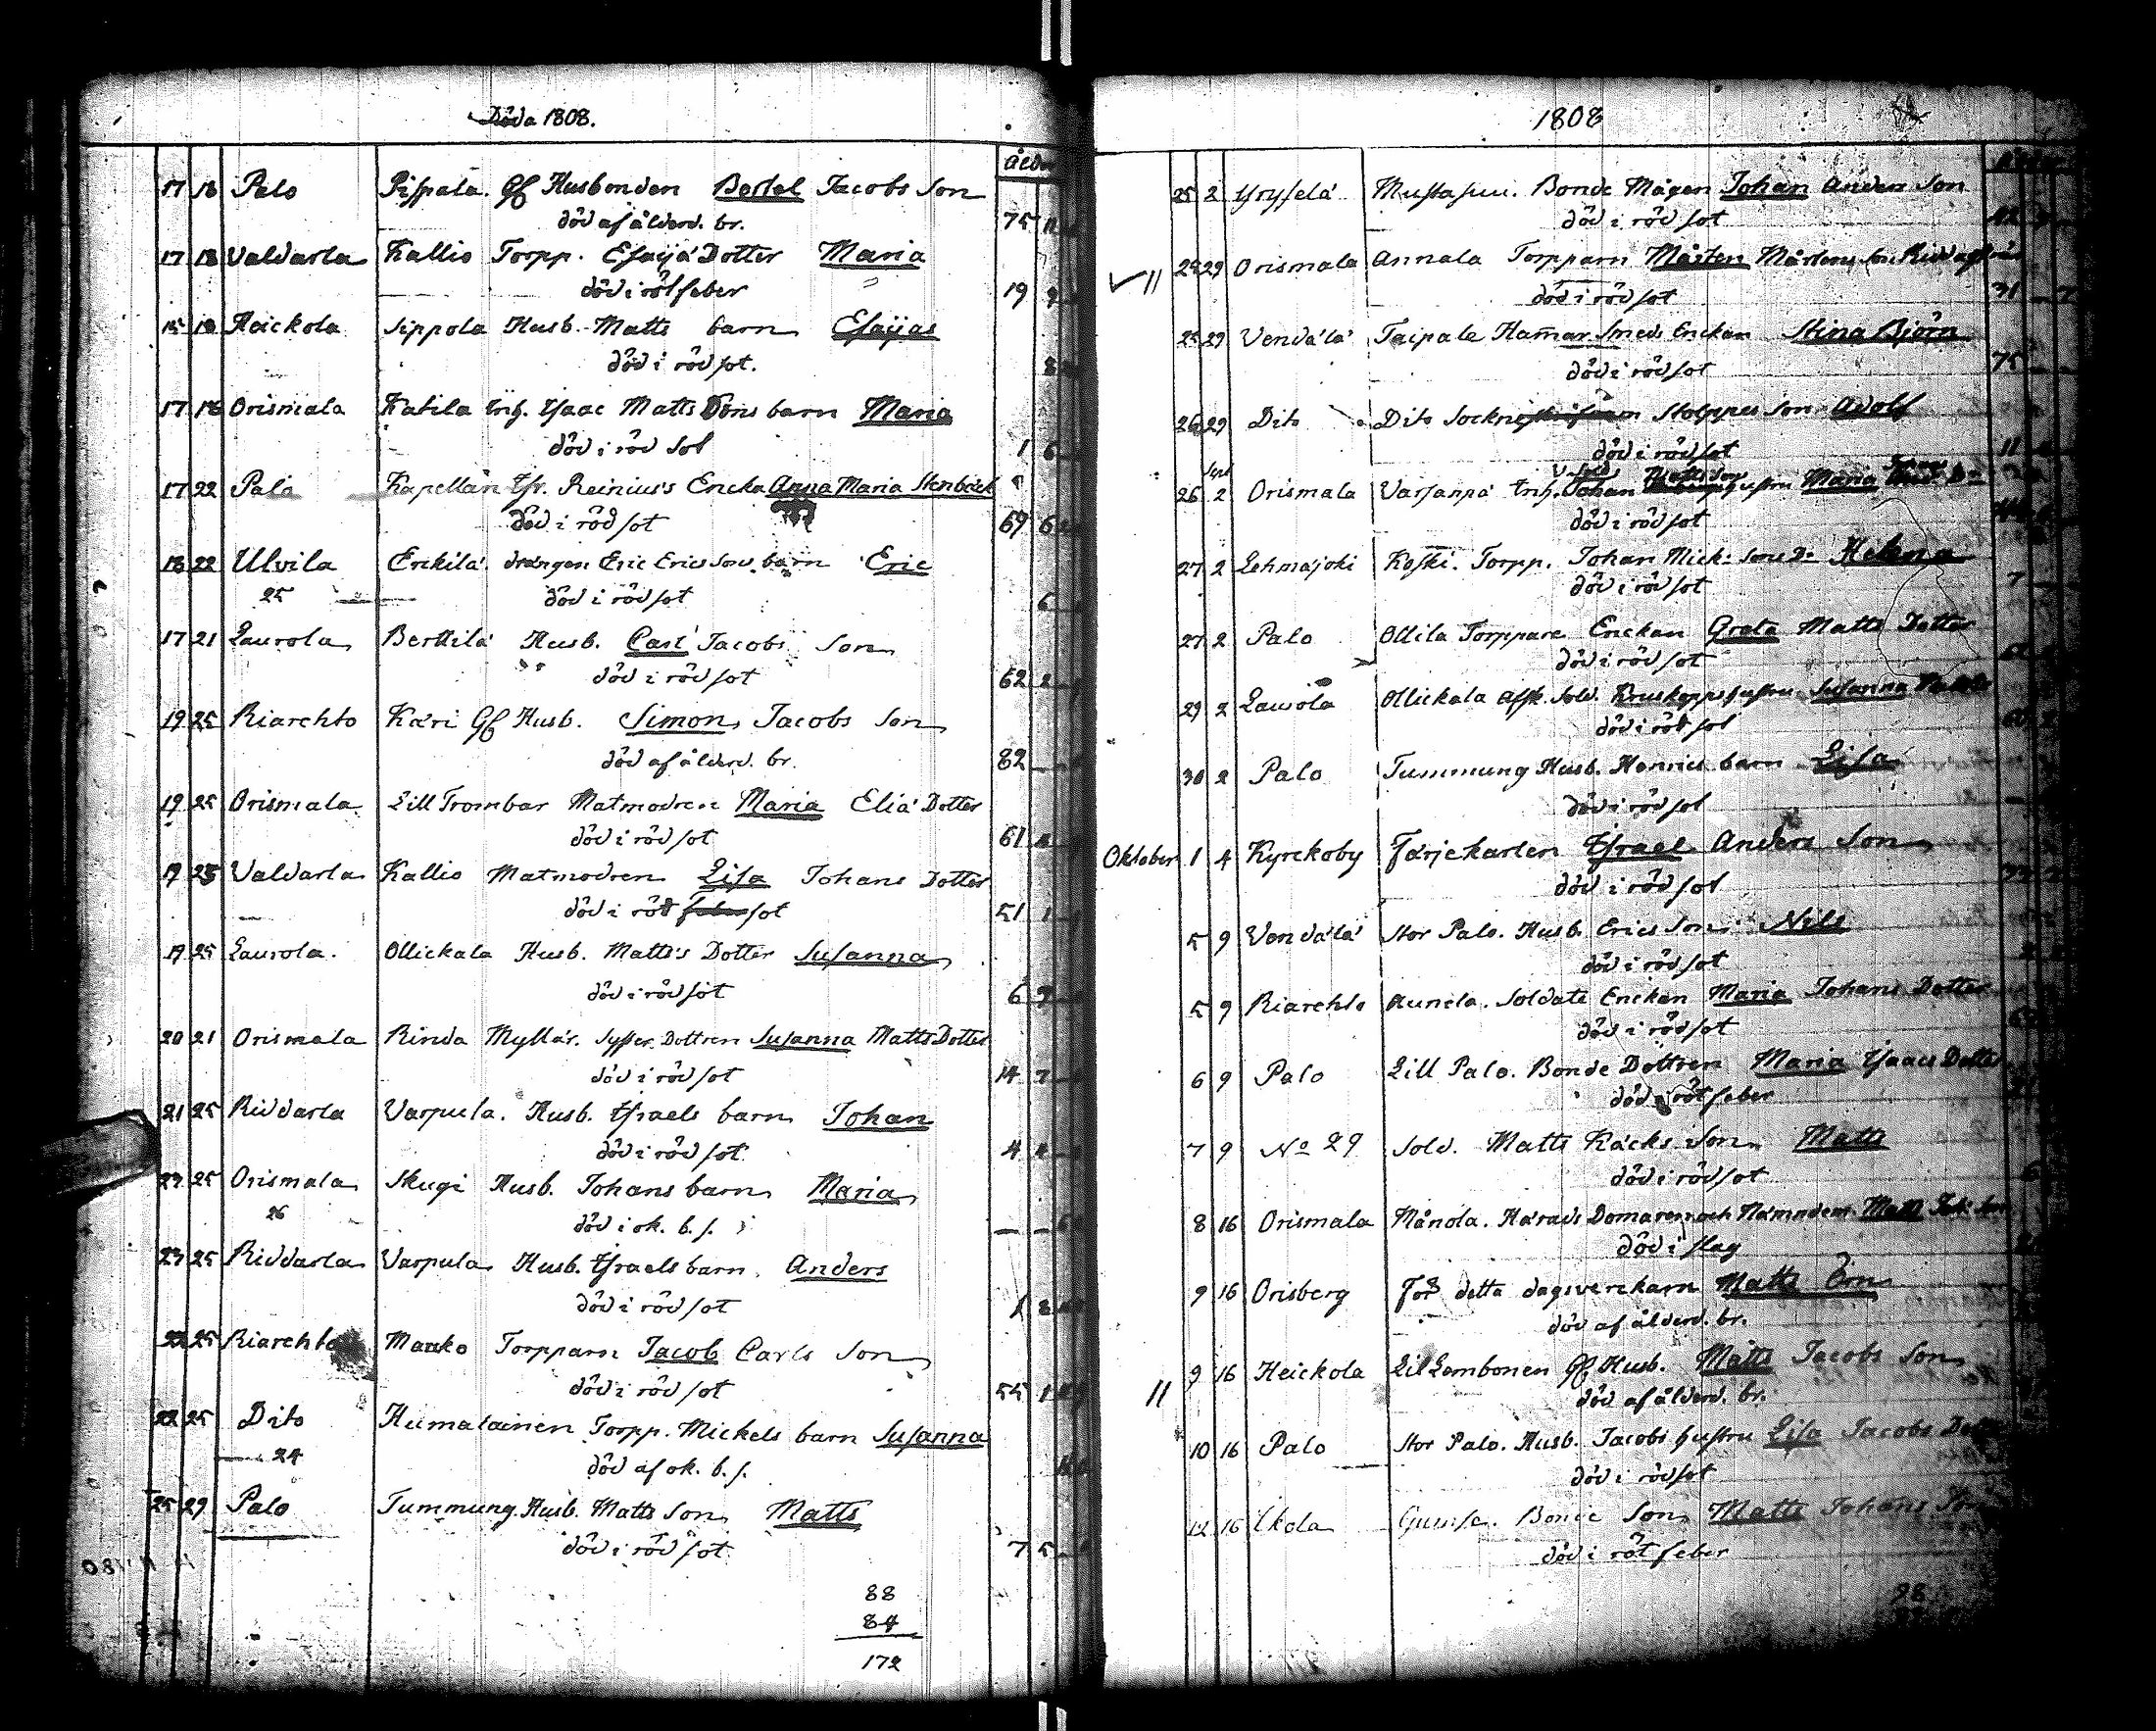 Döda 1808.
Åldr
17 18 Palo Pispala. Gf Husbonden Bertel Jacobs Son
död af ålderd. br. 75 11
17 18 Valdarla Kallio Torpp. Esaijä Dotter Maria
död i rötfeber 19 9
15 18 Heickola Sippola Husb. Matts barn Esaijas
död i rödsot. 8
17 18 Orismala Katila Inh. Isaac Matts Sons barn Maria
död i röd sot 1 6
17 22 Palo Kapellan Hr. Reinius's Encka Anna Maria Stenbäck
död i rödsot 69 6
18 22 Ulvila Erckilä drängen Eric Erics Sons barn Eric
25 död i rödsot 6
17 21 Laurola Berttilä Husb. Carl Jacobs Son
död i rödsot 62 2
19 25 Riarehto Käri Gf Husb. Simon Jacobs Son
död af ålderd. br. 82
19 25 Orismala Lill Trombar Matmodren Maria Eliä Dotter
död i rödsot 61
19 25 Valdarla Kallio Matmodren Lisa Johans Dotter
död i röd feber sot 51 1
19 25 Laurola. Ollickala Husb. Matts's Dotter Susanna
död i rödsot 6 9
20 21 Orismala Rinda Myllär. Syster Dottren Susanna Matts Dotter
död i rödsot 14 7
21 25 Riddarla Varpula. Husb. Israels barn Johan
död i rödsot 4
23 25 Orismala Skugi Husb. Johans barn Maria
26 död i ok. b. s. 6
23 25 Riddarla Varpula Husb. Israels barn Anders
död i rödsot 1 8
22 25 Riarehto Mauko Torpparn Jacob Carls Son
död i rödsot 55 1
22 25 Dito Humalainen Torpp. Mickels barn Susanna
24 död af ok. b. s.
25 29 Palo Tummung Husb. Matts Son Matts
död i rödsot 7 5
88
84
172
1808
25 2 Yryselä Mustapuu. Bonde Mågen Johan Anders Son
död i rödsot
25 29 Orismala Annala Torpparn Mårten Mårtens Son
död i rödsot 31
25 29 Vendälä Taipale Hammar Smeds Enckan Stina Björn
död i rödsot 75
26 29 Dito Dito Stolppes Son Adolf
död i rödsot 11
26 2 Orismala Varsanpä Inh. Johan hustru Maria
död i rödsot
27 2 Lehmajoki Koski. Torpp. Johan Mick: Sons Dr Helena
död i rödsot 7
27 2 Palo Ollila Torppare Enckan Greta Matts Dotter
död i rödsot
29 2 Laurola Ollickala afsk. Sold. Kruskopps hustru Susanna
död i rödsot
30 2 Palo Tummung Husb. Henrics barn Lisa
död i rödsot
Oktober 1 4 Kyrckoby Färjekarlen Israel Anders Son
död i rödsot
5 9 Vendälä Stor Palo. Husb. Erics Son Nils
död i rödsot
5 9 Riarehto Aunela. Soldats Enckan Maria Johans Dotter
död i rödsot
6 9 Palo Lill Palo. Bonde Dottren Maria Isaacs Dotter
död i rötfeber
7 9 No 29 Sold. Matts Käcks Son Matts
död i rödsot
8 16 Orismala Månola. Härads Domaren och Nämndem. Matts
död i slag
9 16 Orisberg För detta dagsverckarn Matts Örn
död af ålderd. br.
9 16 Heickola Lil Lambonen Gf Husb. Matts Jacobs Son
död af ålderd. br.
10 16 Palo Stor Palo. Husb. Jacobs hustru Lisa Jacobs
död i rödsot
12 16 Ikola Bonde Son Matts Johans
död i rötfeber
98